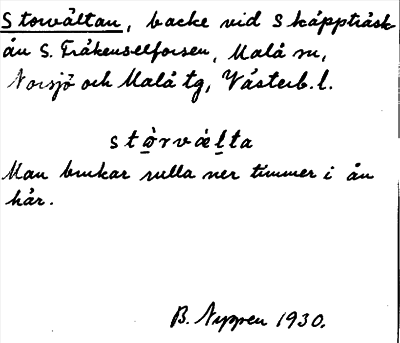 Storvältan, backe vid Skäppträsk
ån S. Tråkenselforsen, Malå sn,
Norsjö och Malå tg, Västerb. l.
stòrvæ̀lta
Man brukar rulla ner timmer i ån
här.
B. Nyppen 1930.